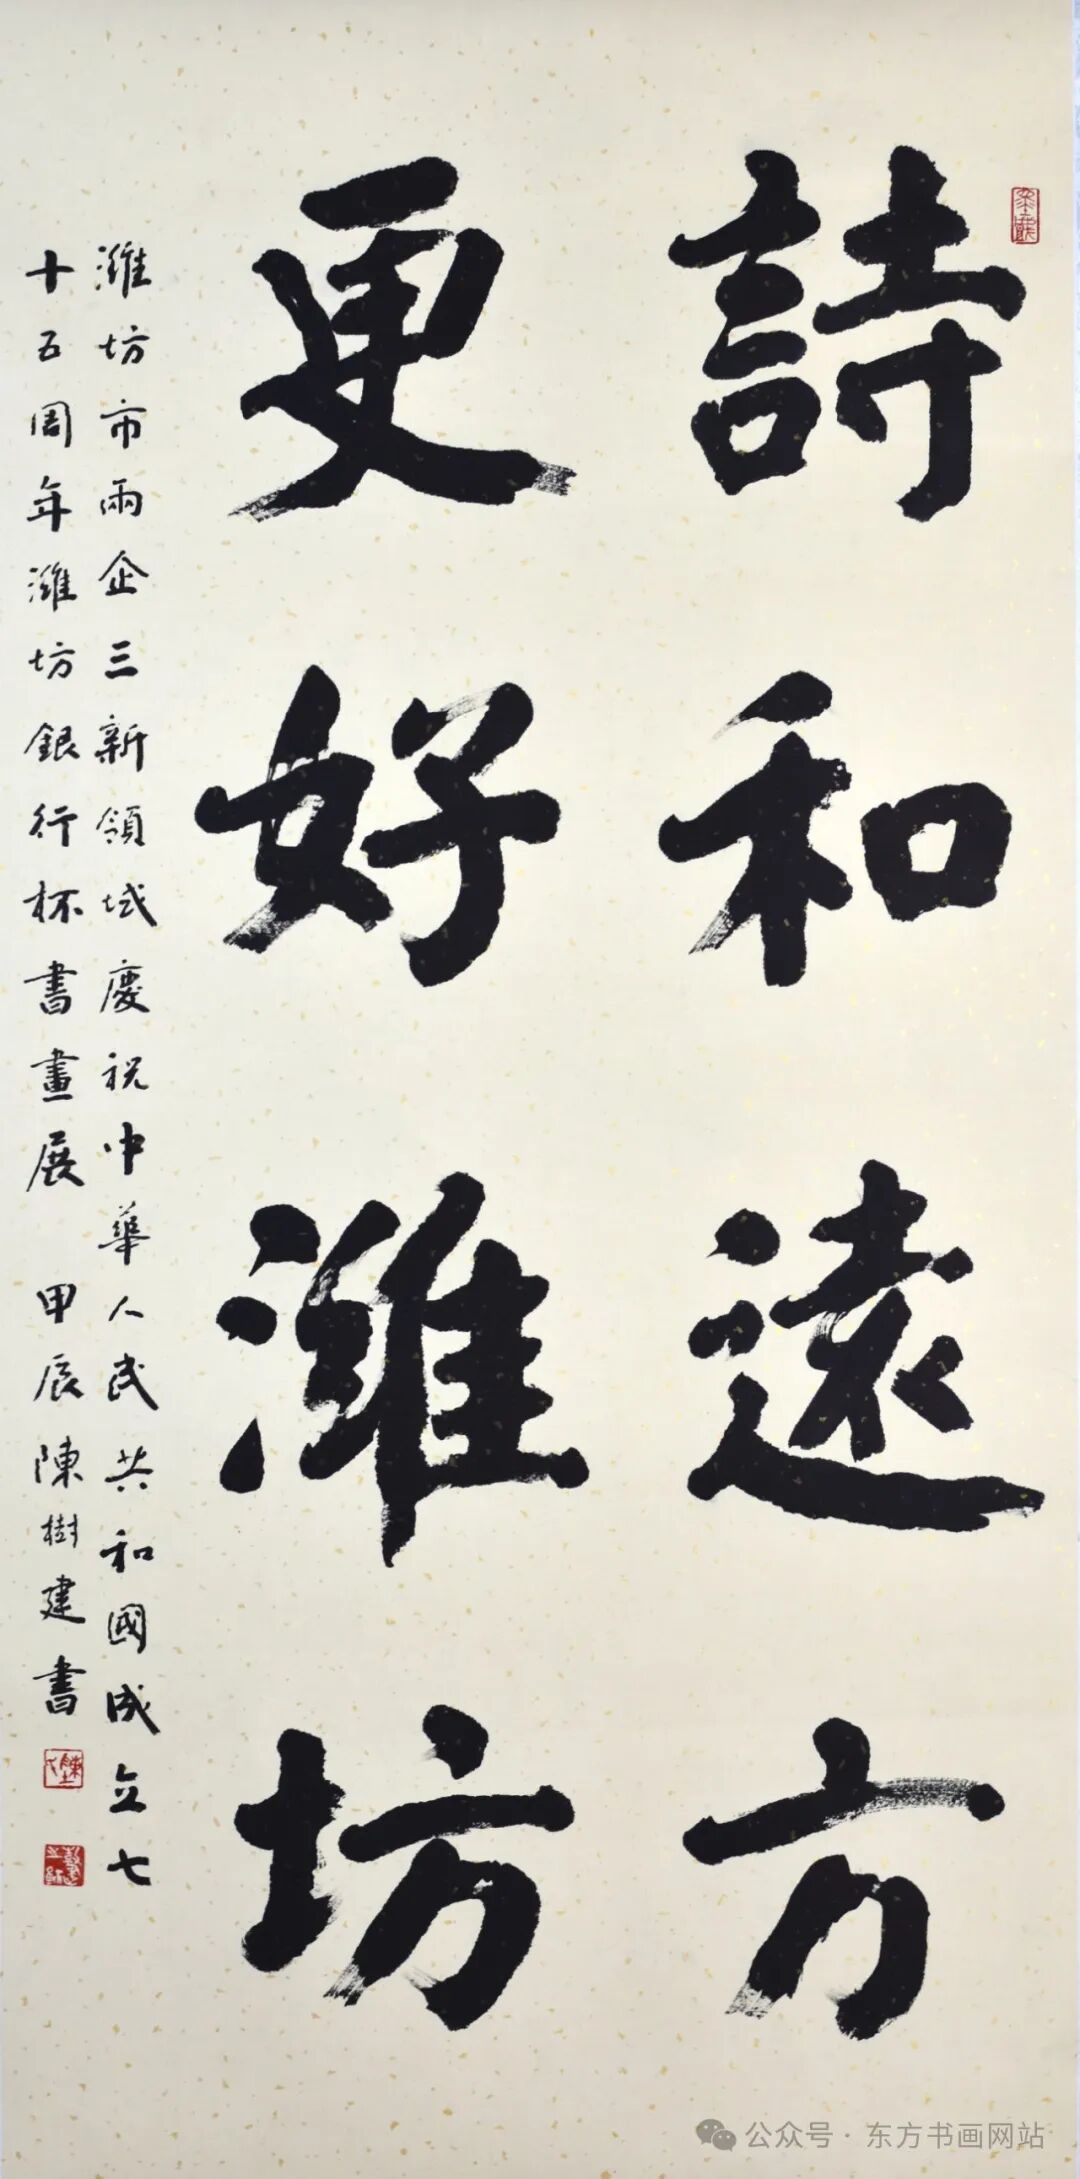 詩和遠方
更好濰坊
濰坊市兩企三新領域慶祝中華人民共和國成立七
十五周年濰坊銀行杯書畫展 甲辰陳樹建書
公众号 · 东方书画网站